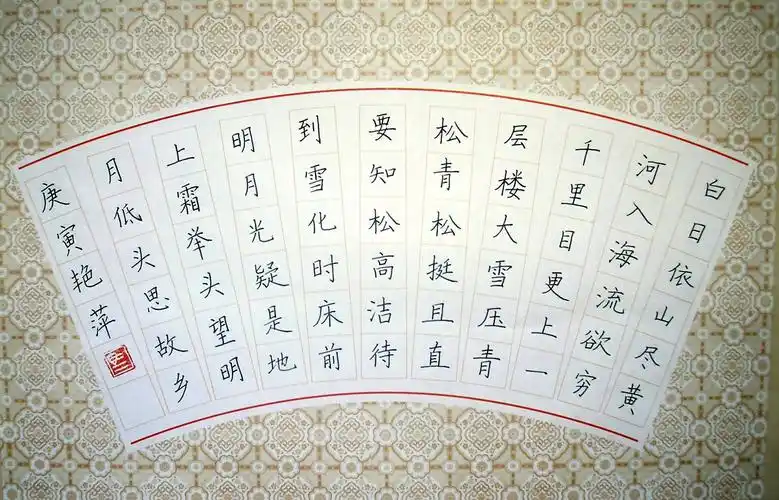 白日依山尽黄
河入海流欲穷
千里目更上一
层楼大雪压青
松青松挺且直
要知松高洁待
到雪化时床前
明月光疑是地
上霜举头望明
月低头思故乡
庚寅艳萍